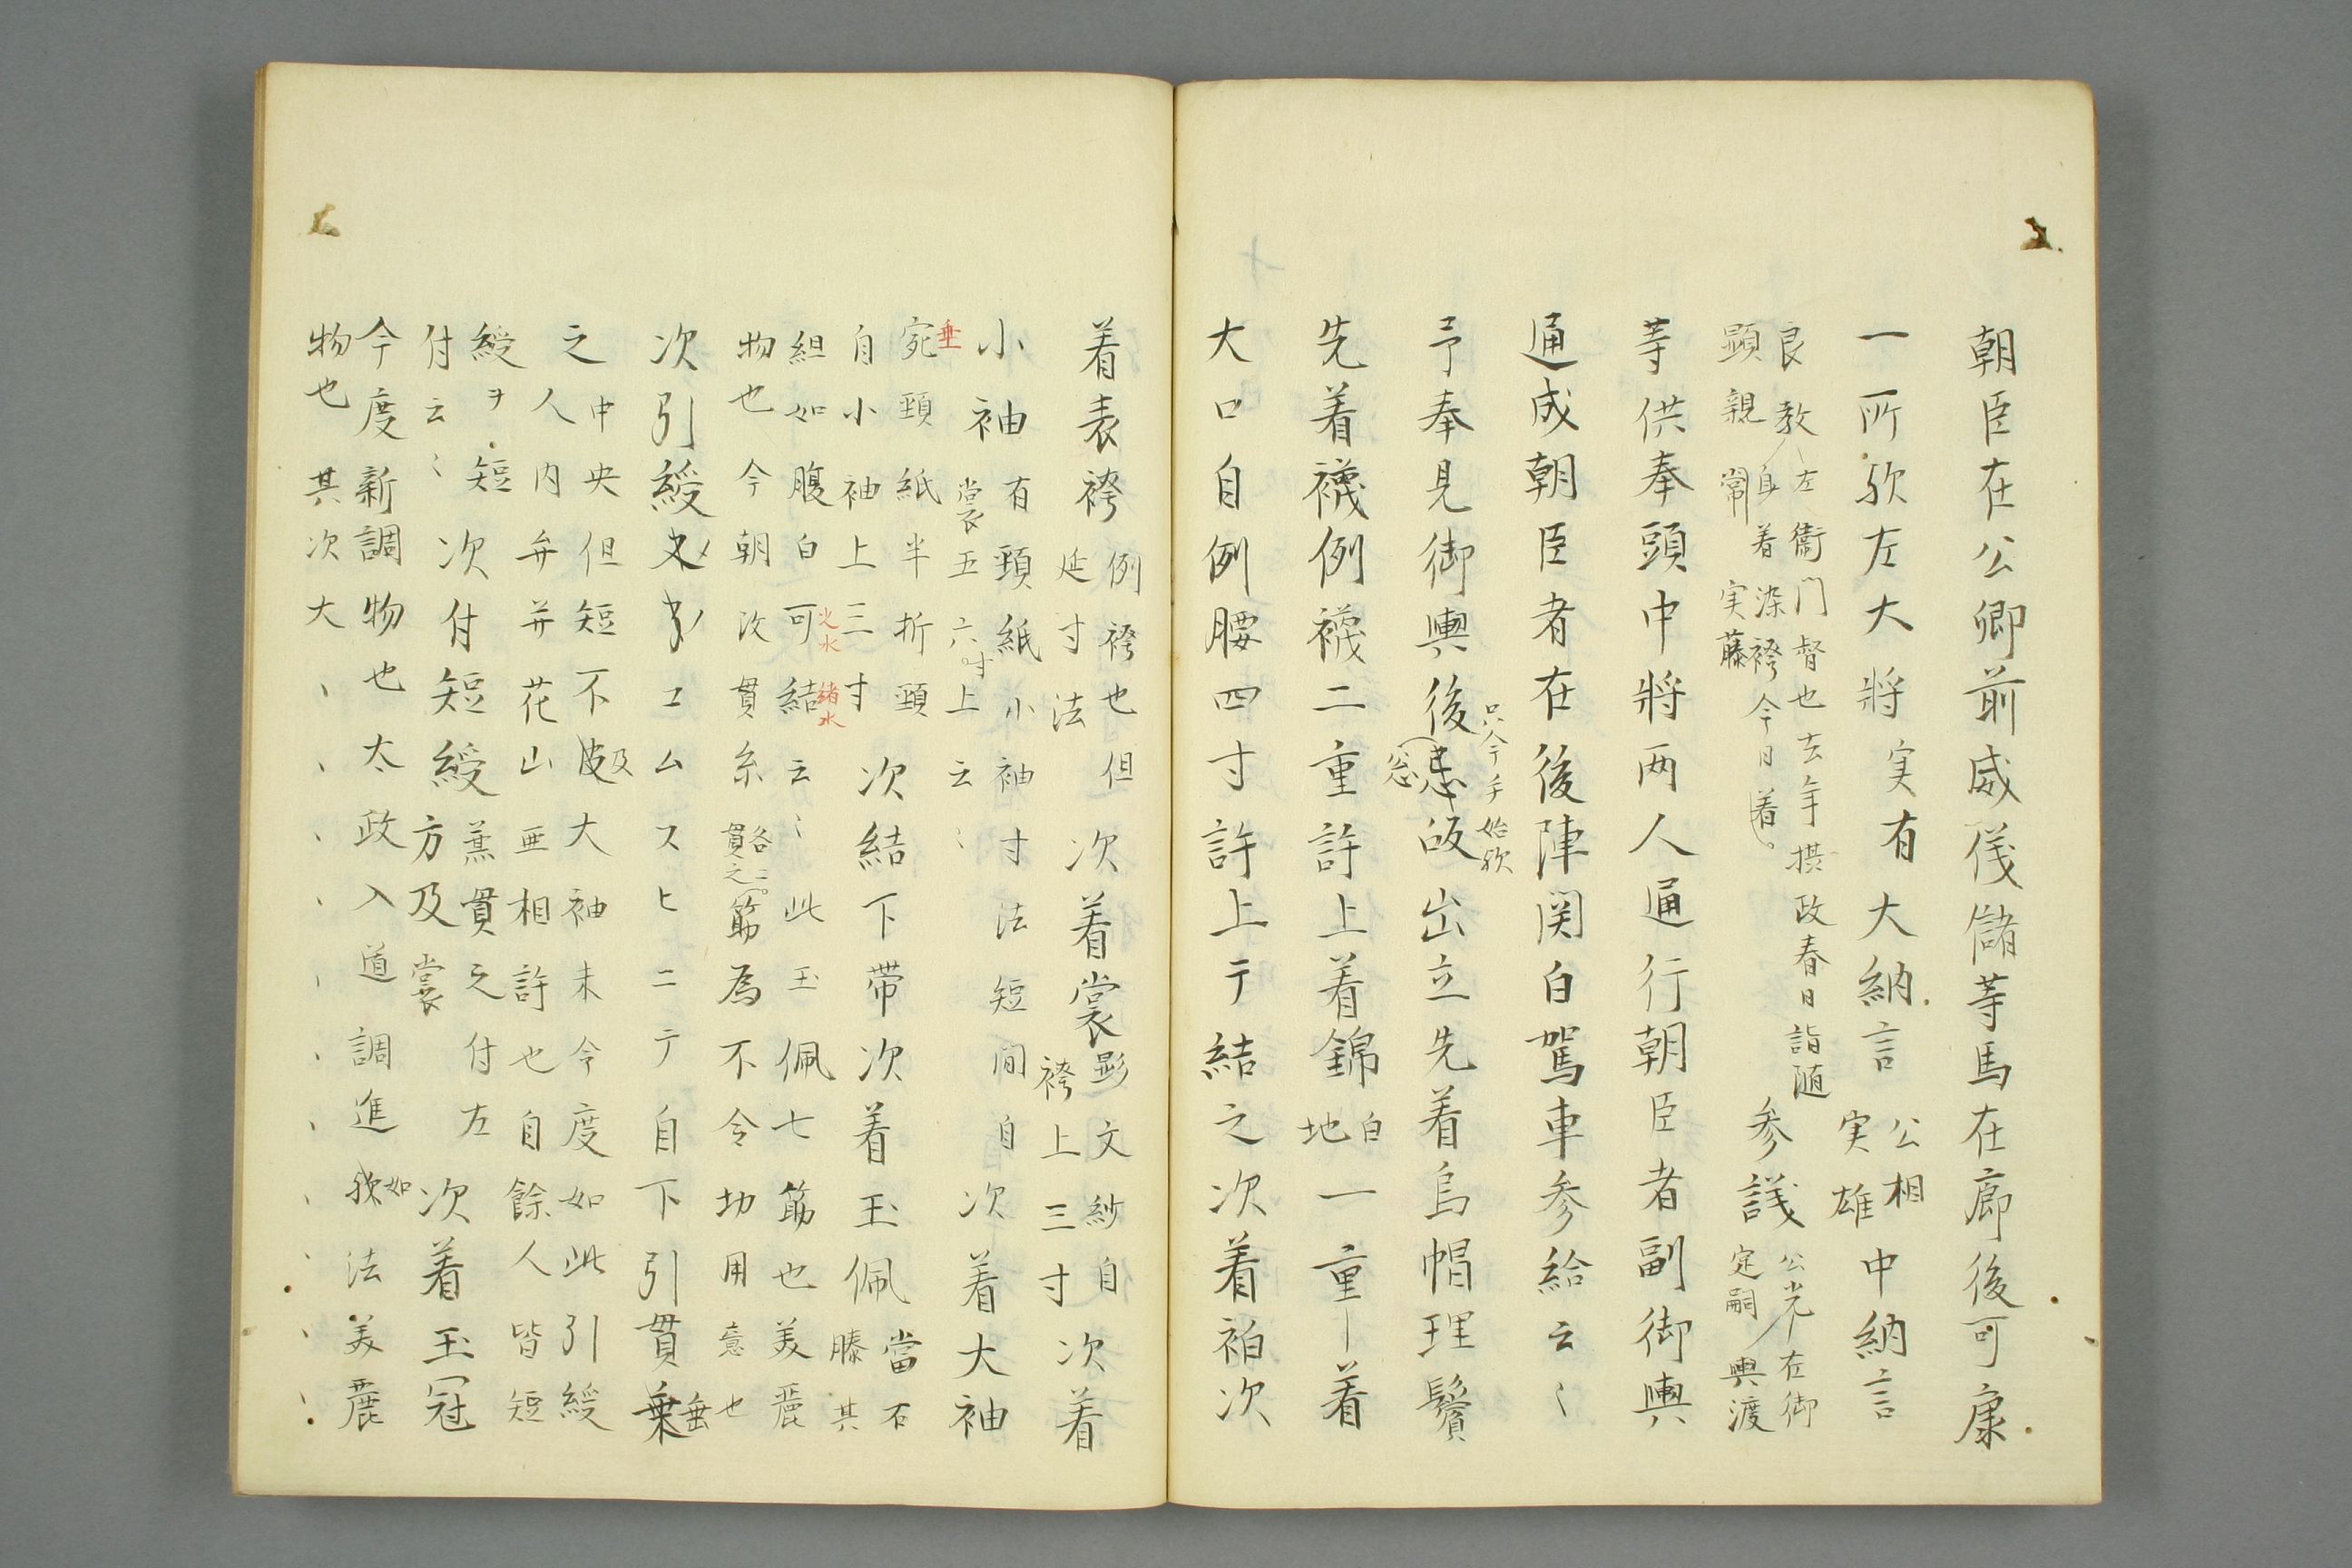 朝臣在公卿前威儀儲等馬在廊後可康
一所歟左大将実有大納言公相実雄中納言
良教左衛門督也去年摂政春日詣随
顕親身着染袴今日着。参議公光左御
定嗣輿渡
等供奉頭中将両人通行朝臣者副御輿
通成朝臣者在後陣関白駕車参給云〻
予奉見御輿後窓皈出立先着烏帽理鬢
先着襪例襪二重許上着錦白地一重着
大口自例腰四寸許上テ結之次着袙次
着表袴例袴也但延寸法次着裳影文紗自袴上三寸次着
小袖有頸紙小袖寸法短間自
裳五六寸上云〻次着大袖
垂
宛頸紙半折頸
自小袖上三寸次結下帯次着玉佩當石
滕其
組如腹白可結云〻此玉佩七筋也美麗
物也今朝改貫糸各二筋貫之為不令切用意也
次引綬エムスヒニテ自下引貫垂
之中央但短不及大袖末今度如此引綬
人内弁并花山亜相許也自餘人皆短
綬ヲ短次付短綬兼貫之付左
付云〻方及裳次着玉冠
今度新調物也太政入道調進歟如法美麗
物也其次大、、、、、、、、、